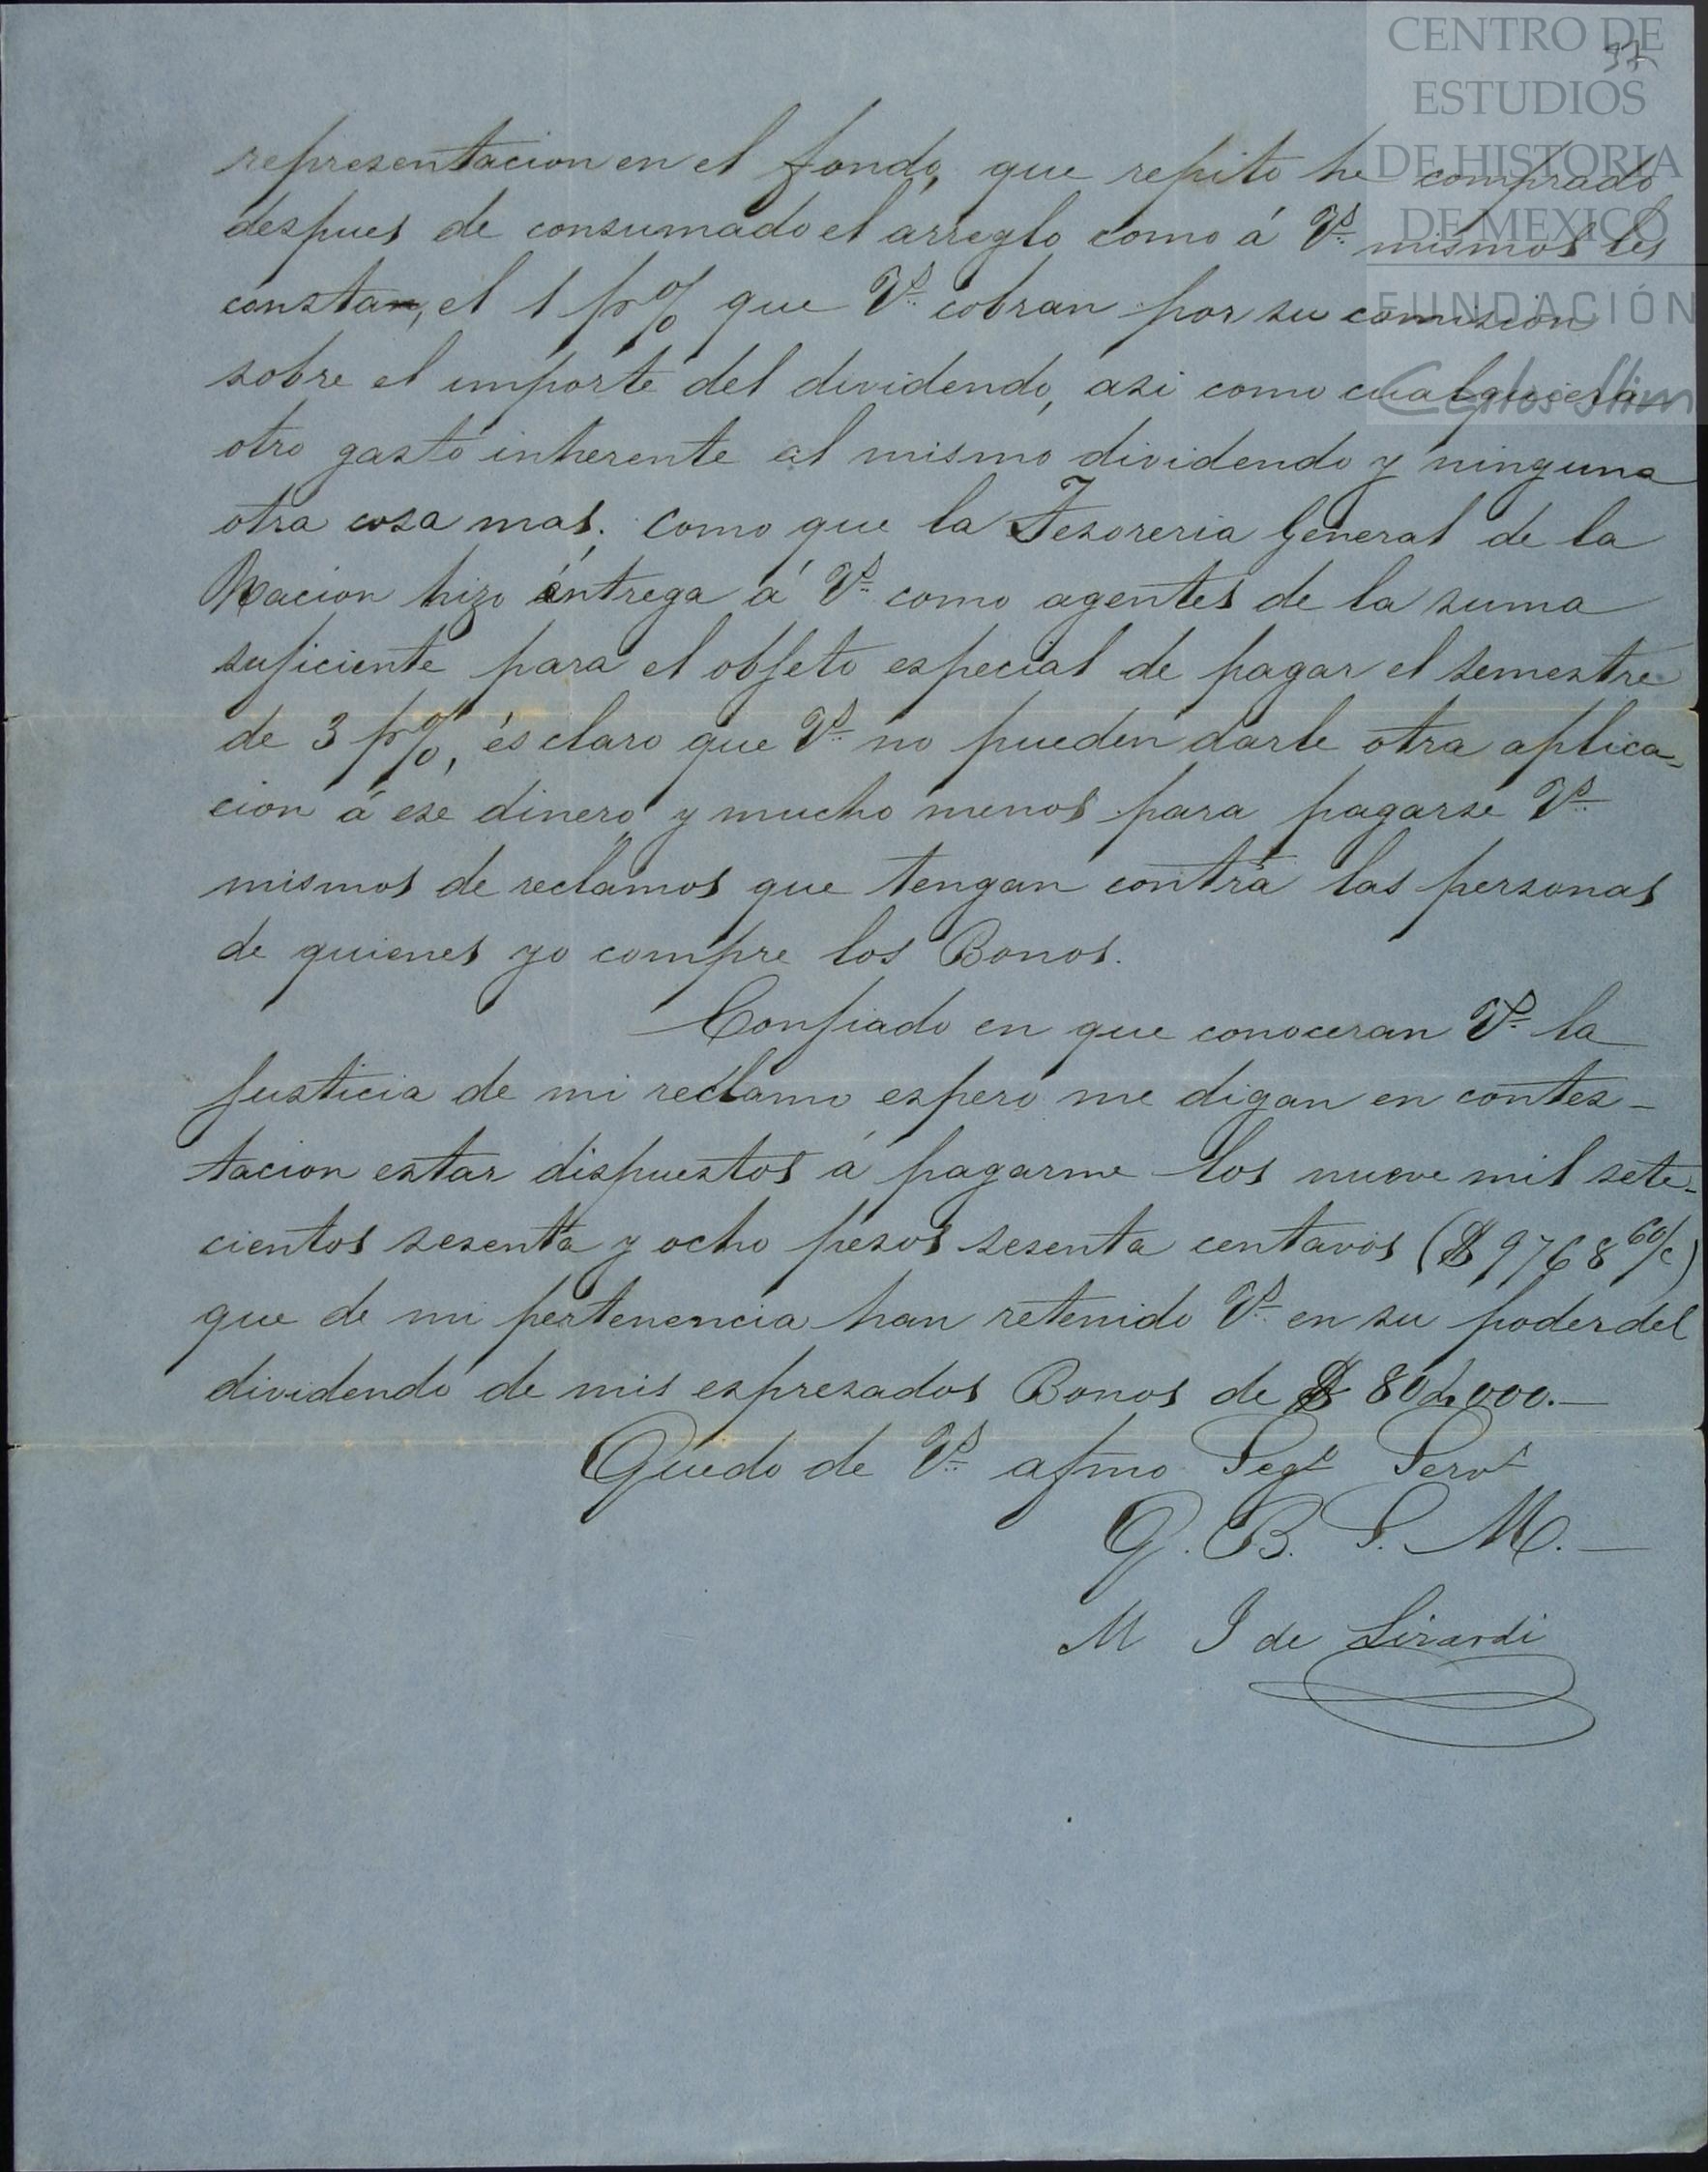 CENTRO DE
ESTUDIOS
DE HISTORIA
DE MEXICO
FUNDACIÓN
Carlos Slim
representacion en el fondo, que repito he comprado
despues de consumado el arreglo como á Vs. mismos les
consta, el 1 p% que Vs. cobran por su comision
sobre el importe del dividendo, asi como cualquiera
otro gasto inherente al mismo dividendo y ninguna
otra cosa mas; como que la Tesoreria General de la
Nacion hizo éntrega á Vs. como agentes de la suma
suficiente para el objeto especial de pagar el semestre
de 3 p%, és claro que Vs. no pueden darle otra aplica-
cion á ese dinero y mucho menos para pagarse Vs.
mismos de reclamos que tengan contra las personas
de quienes yo compre los Bonos.
Confiado en que conoceran Vs. la
justicia de mi reclamo espero me digan en contes-
tacion estar dispuestos á pagarme los nueve mil sete-
cientos sesenta y ocho pesos sesenta centavos ($ 9768 60/c)
que de mi pertenencia han retenido Vs. en su poder del
dividendo de mis espresados Bonos de $ 802,000.—
Quedo de Vs. afmo Sego Servr
Q. B. S. M.—
M J de Lizardi